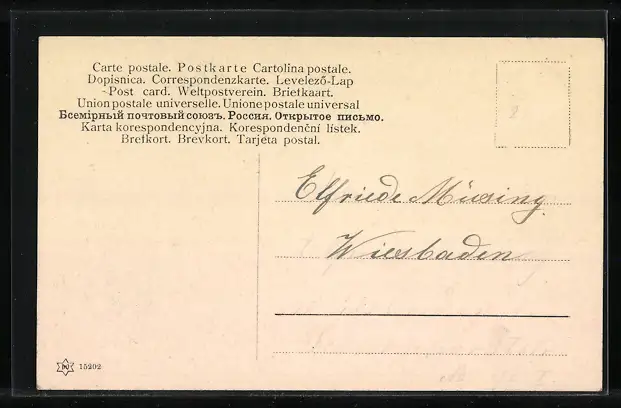 Carte postale. Postkarte Cartolina postale.
Dopisnica. Correspondenzkarte. Levelező-Lap
Post card. Weltpostverein. Briefkaart.
Union postale universelle. Unione postale universal
Всемірный почтовый союзъ. Россия. Открытое письмо.
Karta korespondencyjna. Korespondenční lístek.
Brefkort. Brevkort. Tarjeta postal.
Elfriede
Wiesbaden
15202